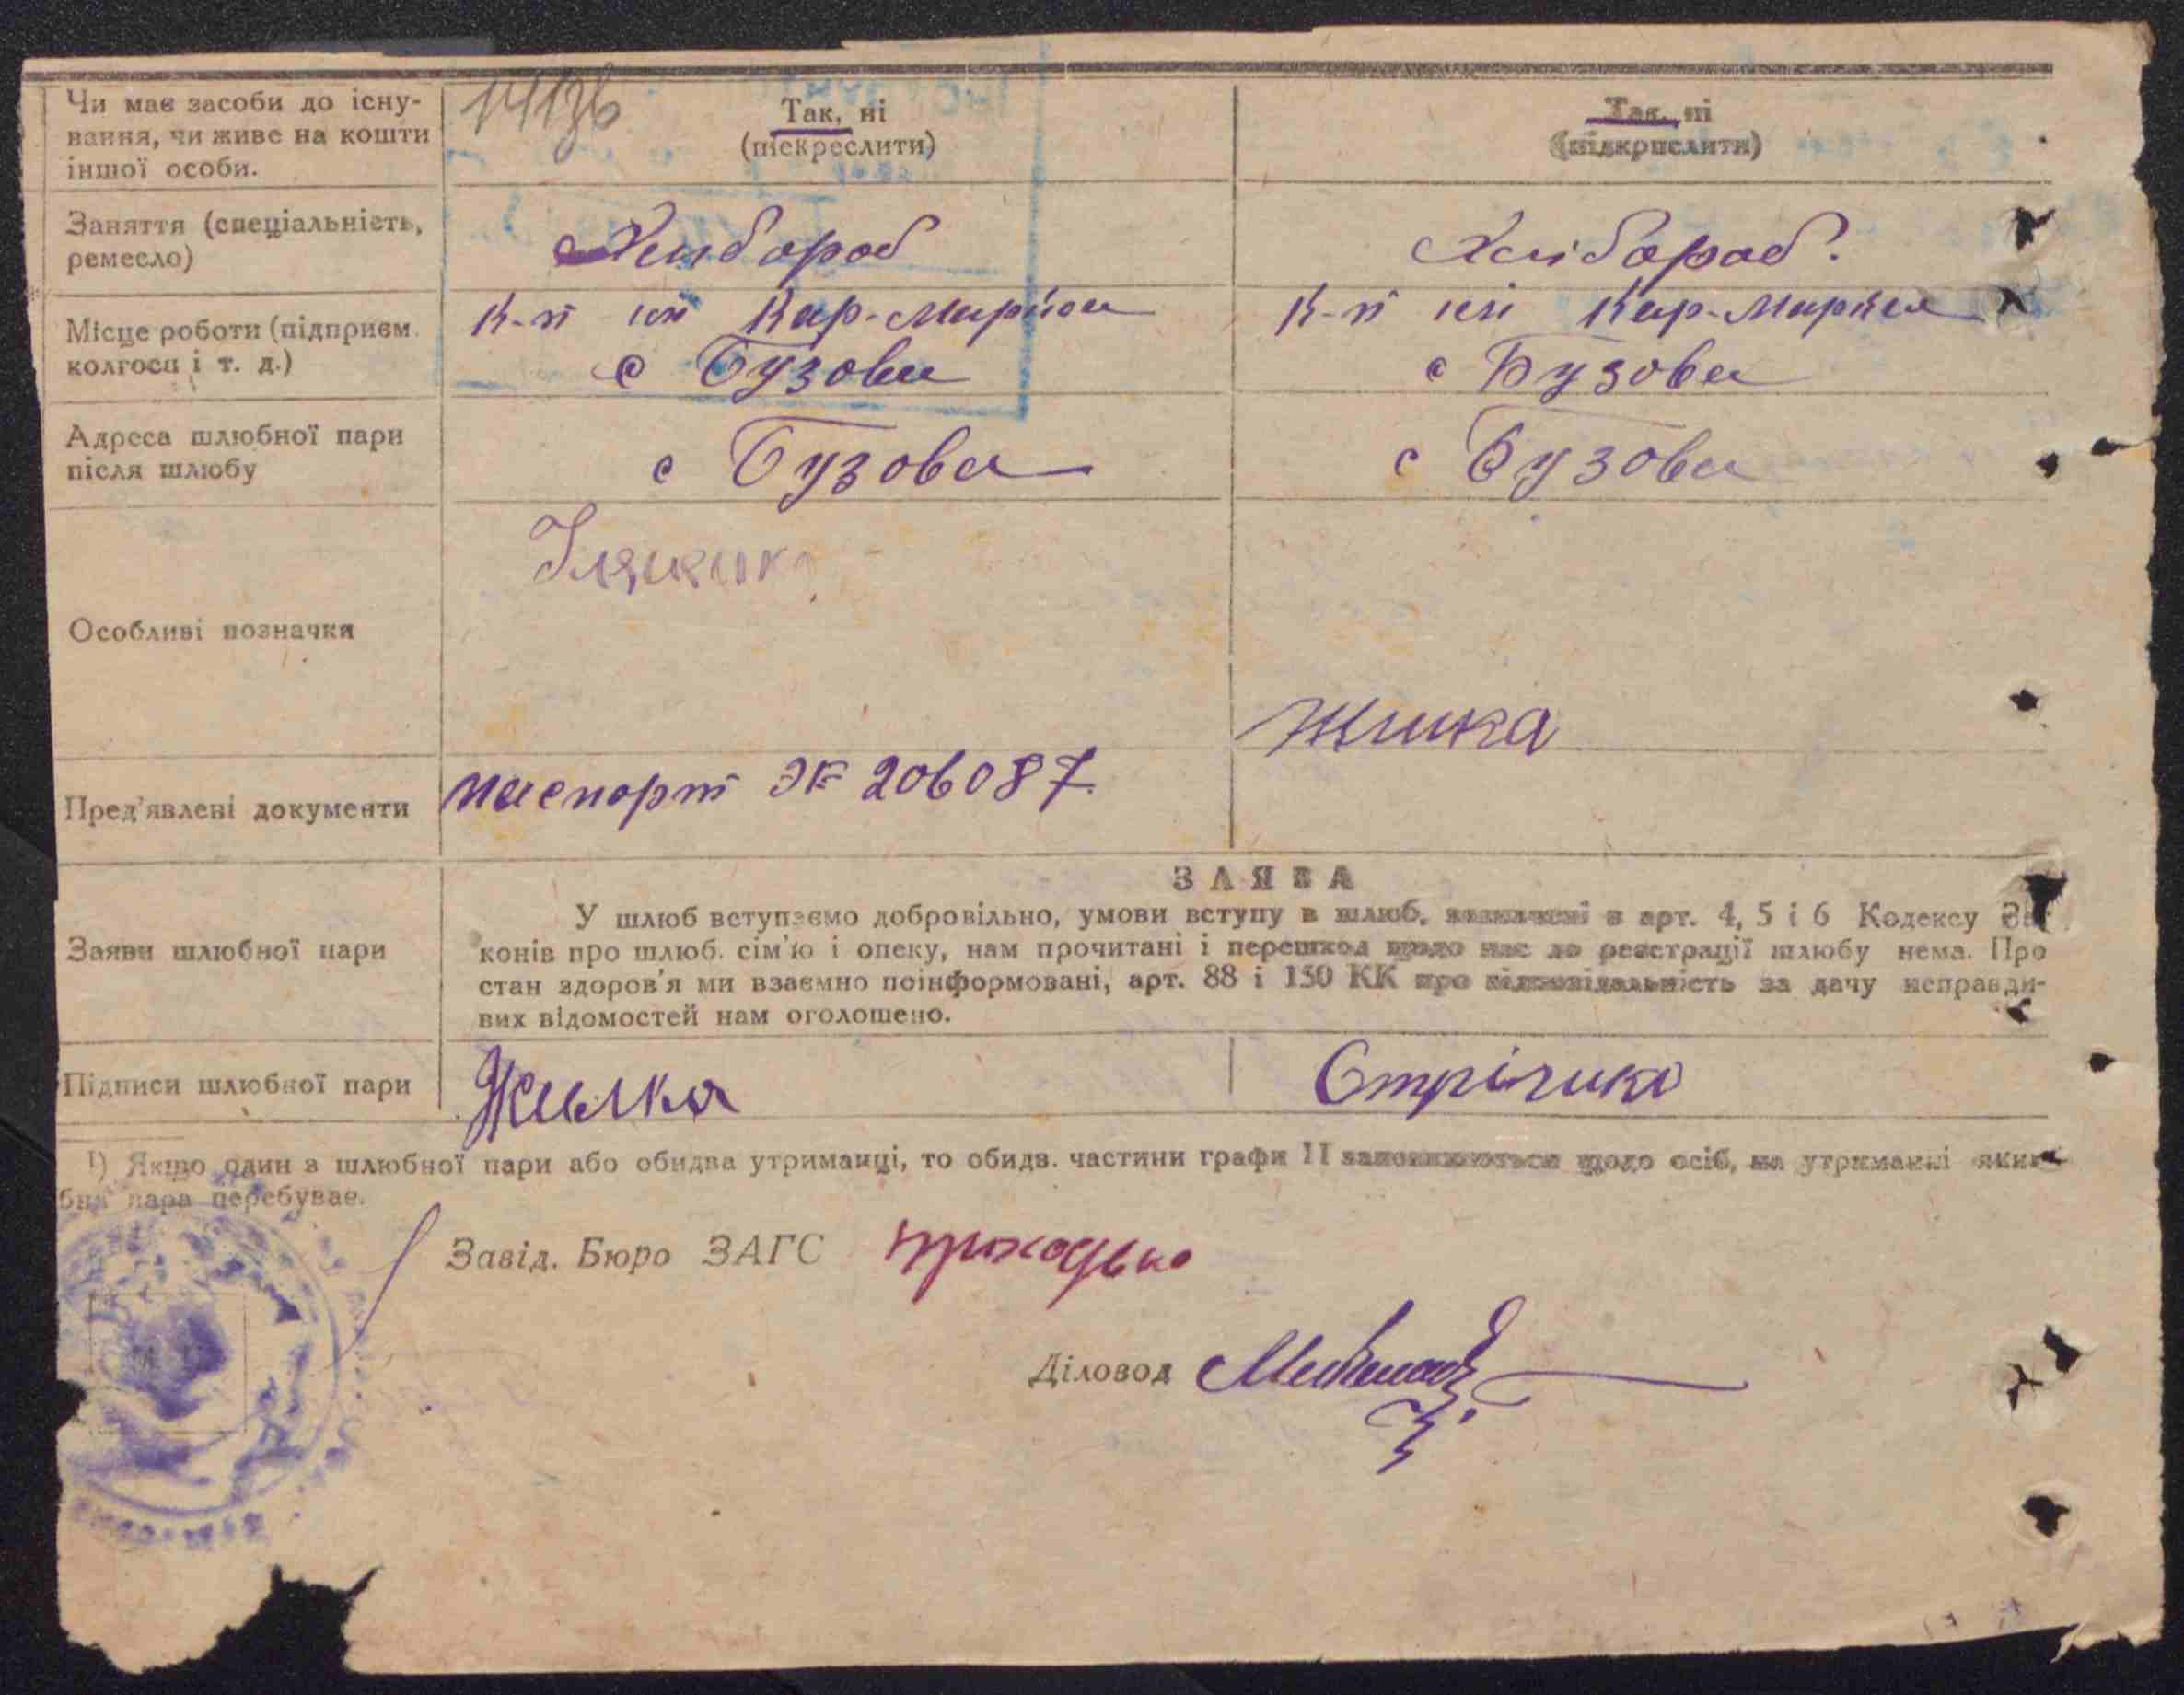 Чи має засоби до існу-
вання, чи живе на кошти
іншої особи.
Так, ні
(піекреслити)
Так, ні
(підкрислити)
Заняття (спеціальність,
ремесло)
Хлибороб
Хлібороб.
Місце роботи (підприєм.
колгосп і т. д.)
К-п ім Кар-Маркса
с Бузова
К-п ім Кар-Маркса
с Бузова
Адреса шлюбної пари
після шлюбу
с Бузова
с Бузова
Особливі позначки
Жилка
Пред'явлені документи
паспорт ЭК 206087
ЗАЯВА
Заяви шлюбної пари
У шлюб вступаємо добровільно, умови вступу в шлюб, зазначені в арт. 4, 5 і 6 Кодексу За-
конів про шлюб. сім'ю і опеку, нам прочитані і перешкод щодо нас до реєстрації шлюбу нема. Про
стан здоров'я ми взаємно поінформовані, арт. 88 і 130 КК про відповідальність за дачу неправди-
вих відомостей нам оголошено.
Підписи шлюбної пари
Жилка
Стрічика
1) Якщо один з шлюбної пари або обидва утриманці, то обидв. частини графи 11 заповнюються щодо осіб, на утриманні яких
бна пара перебуває.
Завід. Бюро ЗАГС Приходько
Діловод